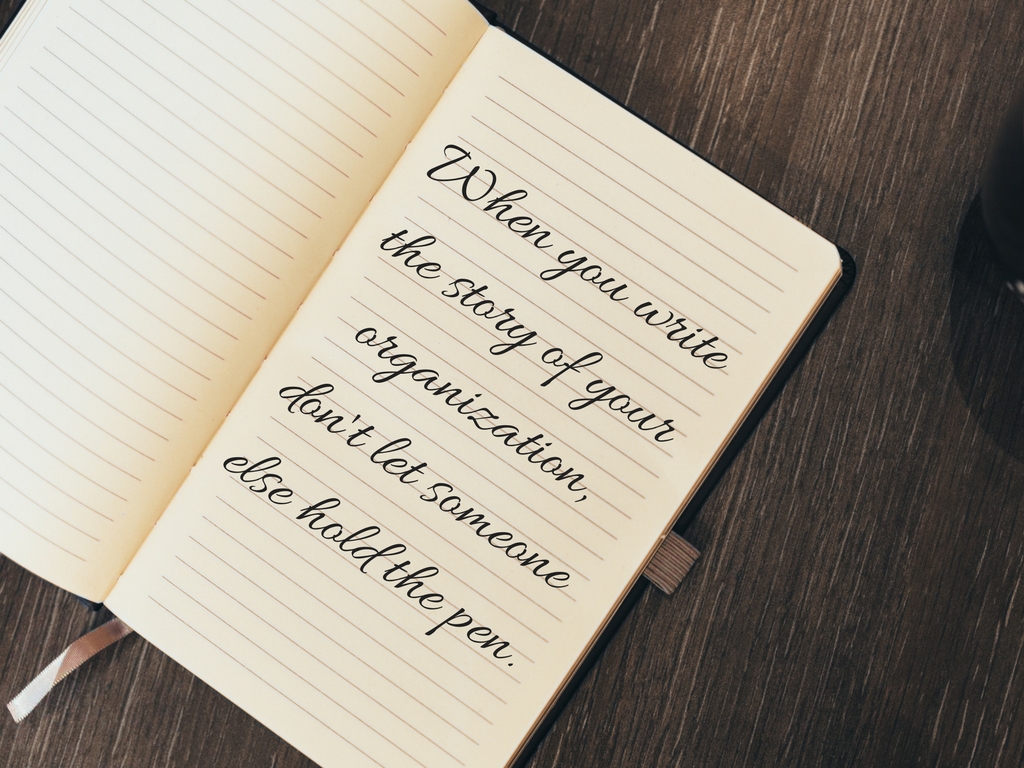 When you write
the story of your
organization,
don't let someone
else hold the pen.